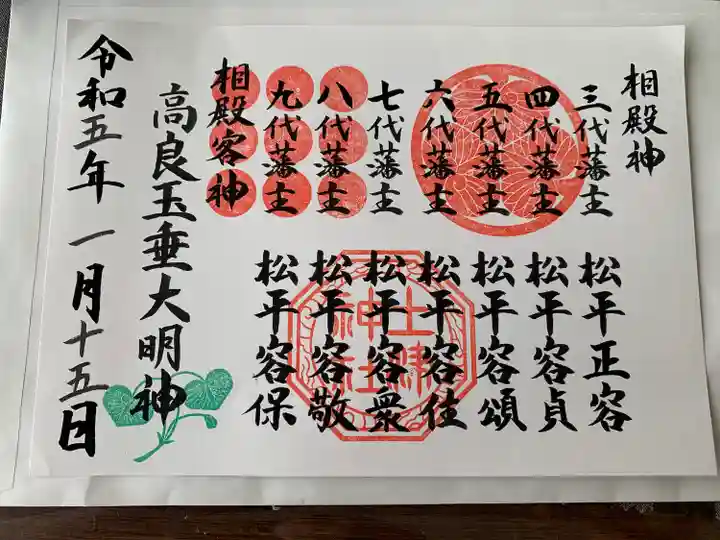 相殿神
三代藩主 松平正容
四代藩主 松平容貞
五代藩主 松平容頌
六代藩主 松平容住
七代藩主 松平容衆
八代藩主 松平容敬
九代藩主 松平容保
相殿客神
高良玉垂大明神
令和五年一月十五日
土津
神社